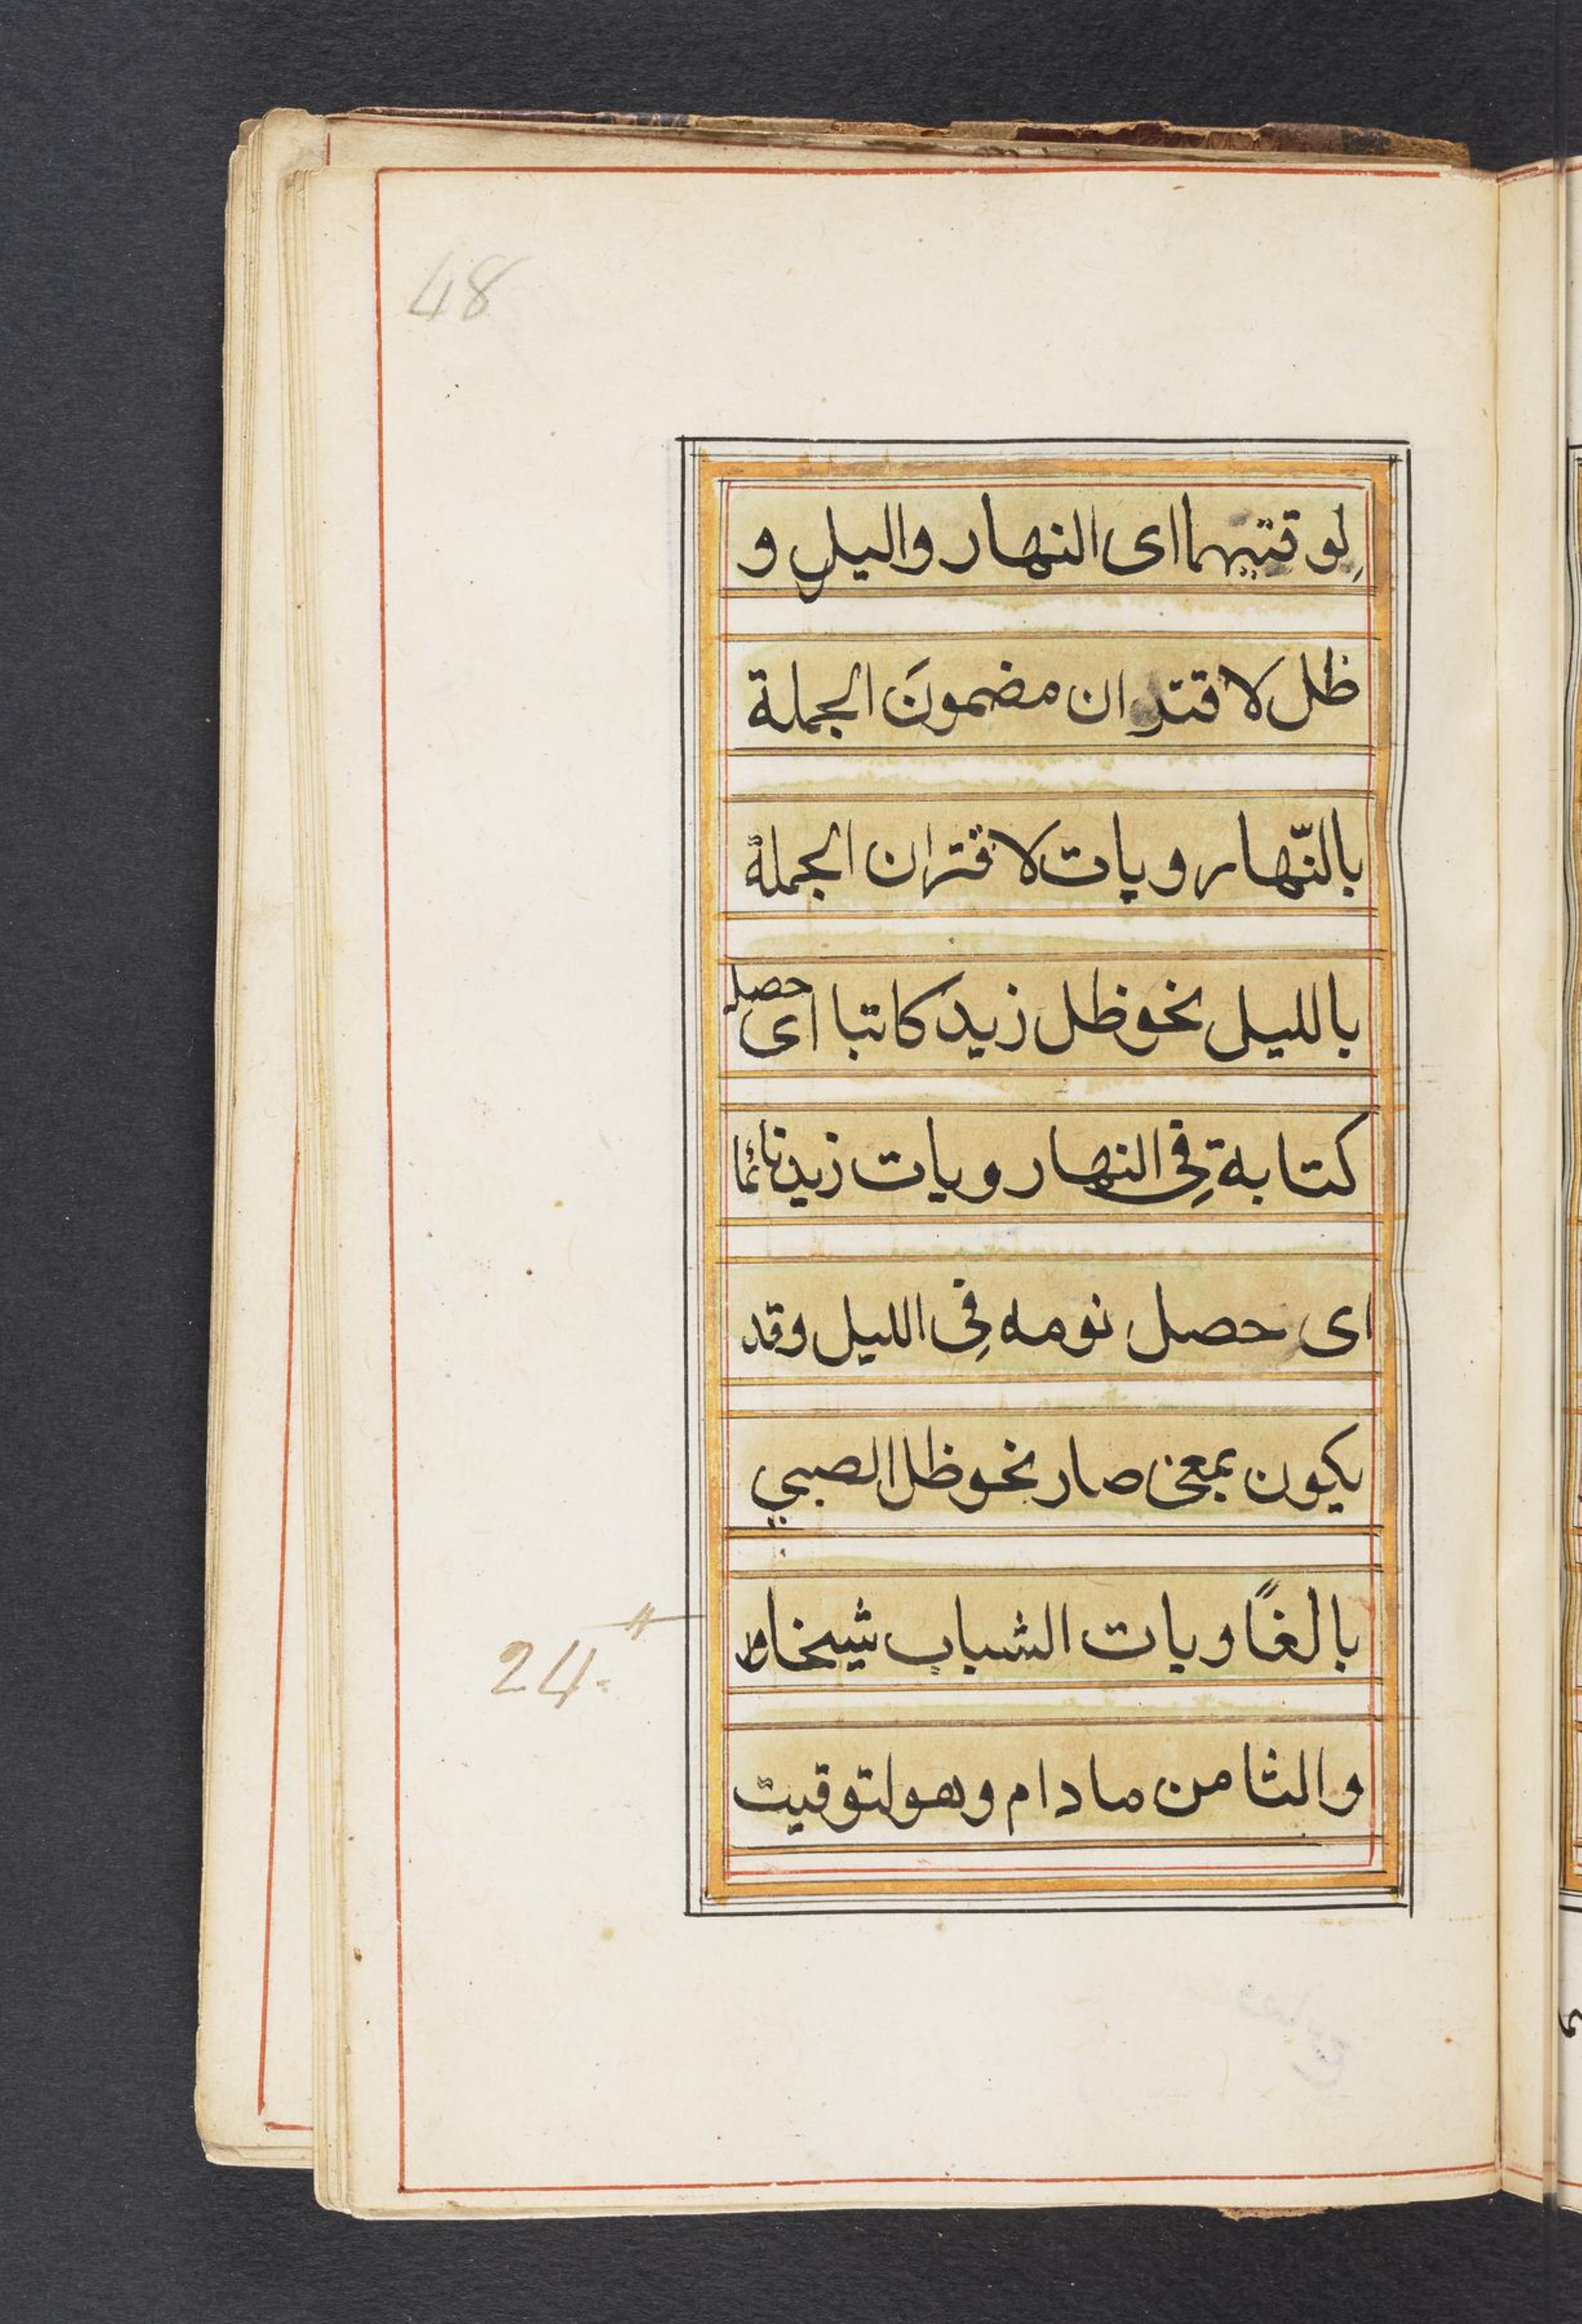 48
لِوقتيهما اى النهار واليل و
ظل لاقتران مضمونَ الجملة
بالنّهار وبات لاقتران الجملة
بالليل نحو ظل زيد كاتبا اى حصل
كتابة فِى النهار وبات زيد نائما
اى حصل نومه فِى الليل وقد
يكون بمعنى صار نحو ظل الصبي
بالغًا وبات الشباب شيخا
24
والثامن مادام وهو لتوقيت